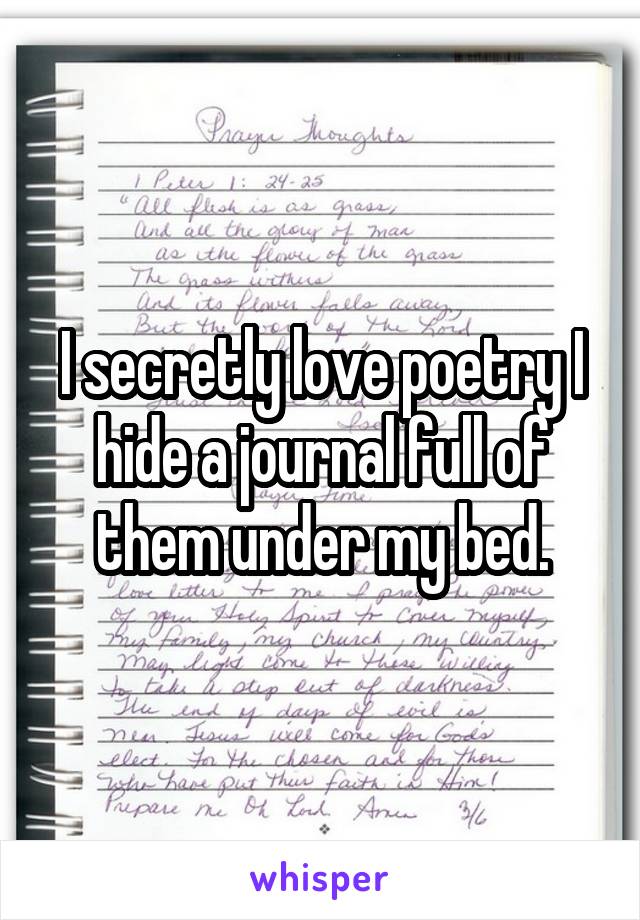 Prayer Thoughts
1 Peter 1: 24-25
"All flesh is as grass,
And all the glory of man
as the flower of the grass
The grass withers
And its flower falls away,
But the word of the Lord
I secretly love poetry I
hide a journal full of
Prayer Time
them under my bed.
love letter to me. I pray the power
of your Holy Spirit to cover myself,
my family, my church, my country.
May light come to those willing
to take a step out of darkness.
The end of days of evil is
near. Jesus will come for God's
elect. For the chosen and for those
who have put their faith in Him!
Prepare me Oh Lord. Amen 3/6
whisper